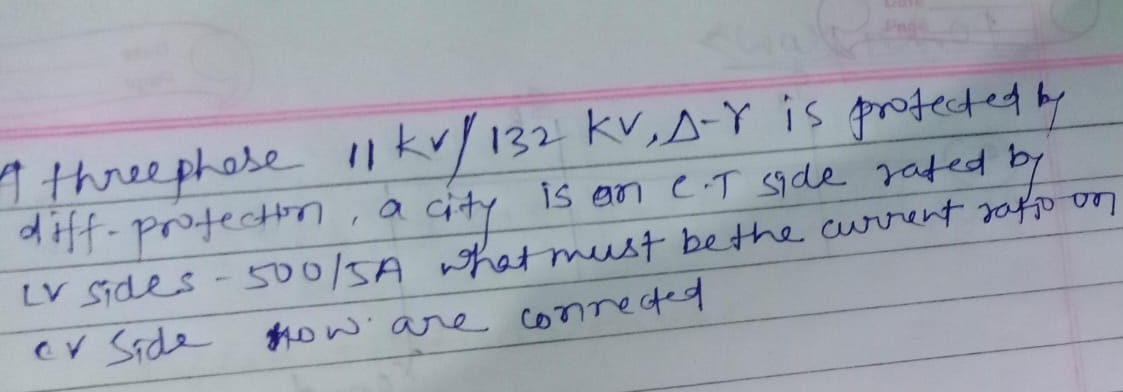 A three phase 11 kv/132 KV, Δ-Y is protected by
diff. protection, a city is an C.T side rated by
LV sides - 500/5A what must be the current ratio on
cv Side How are connected